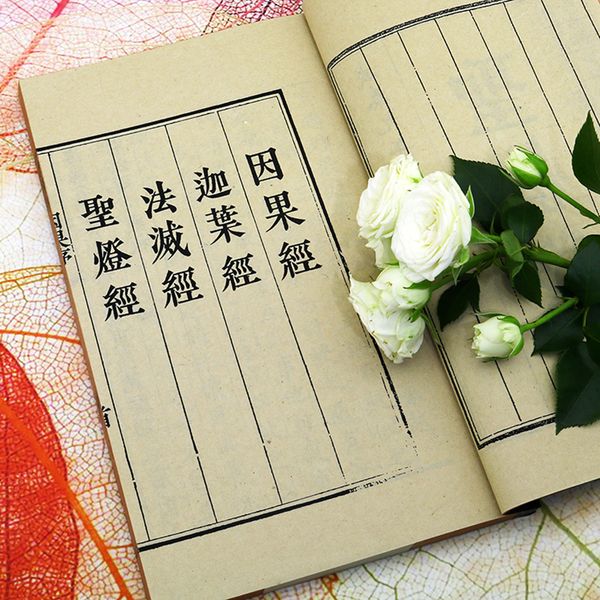 因果經
迦葉經
法滅經
聖燈經